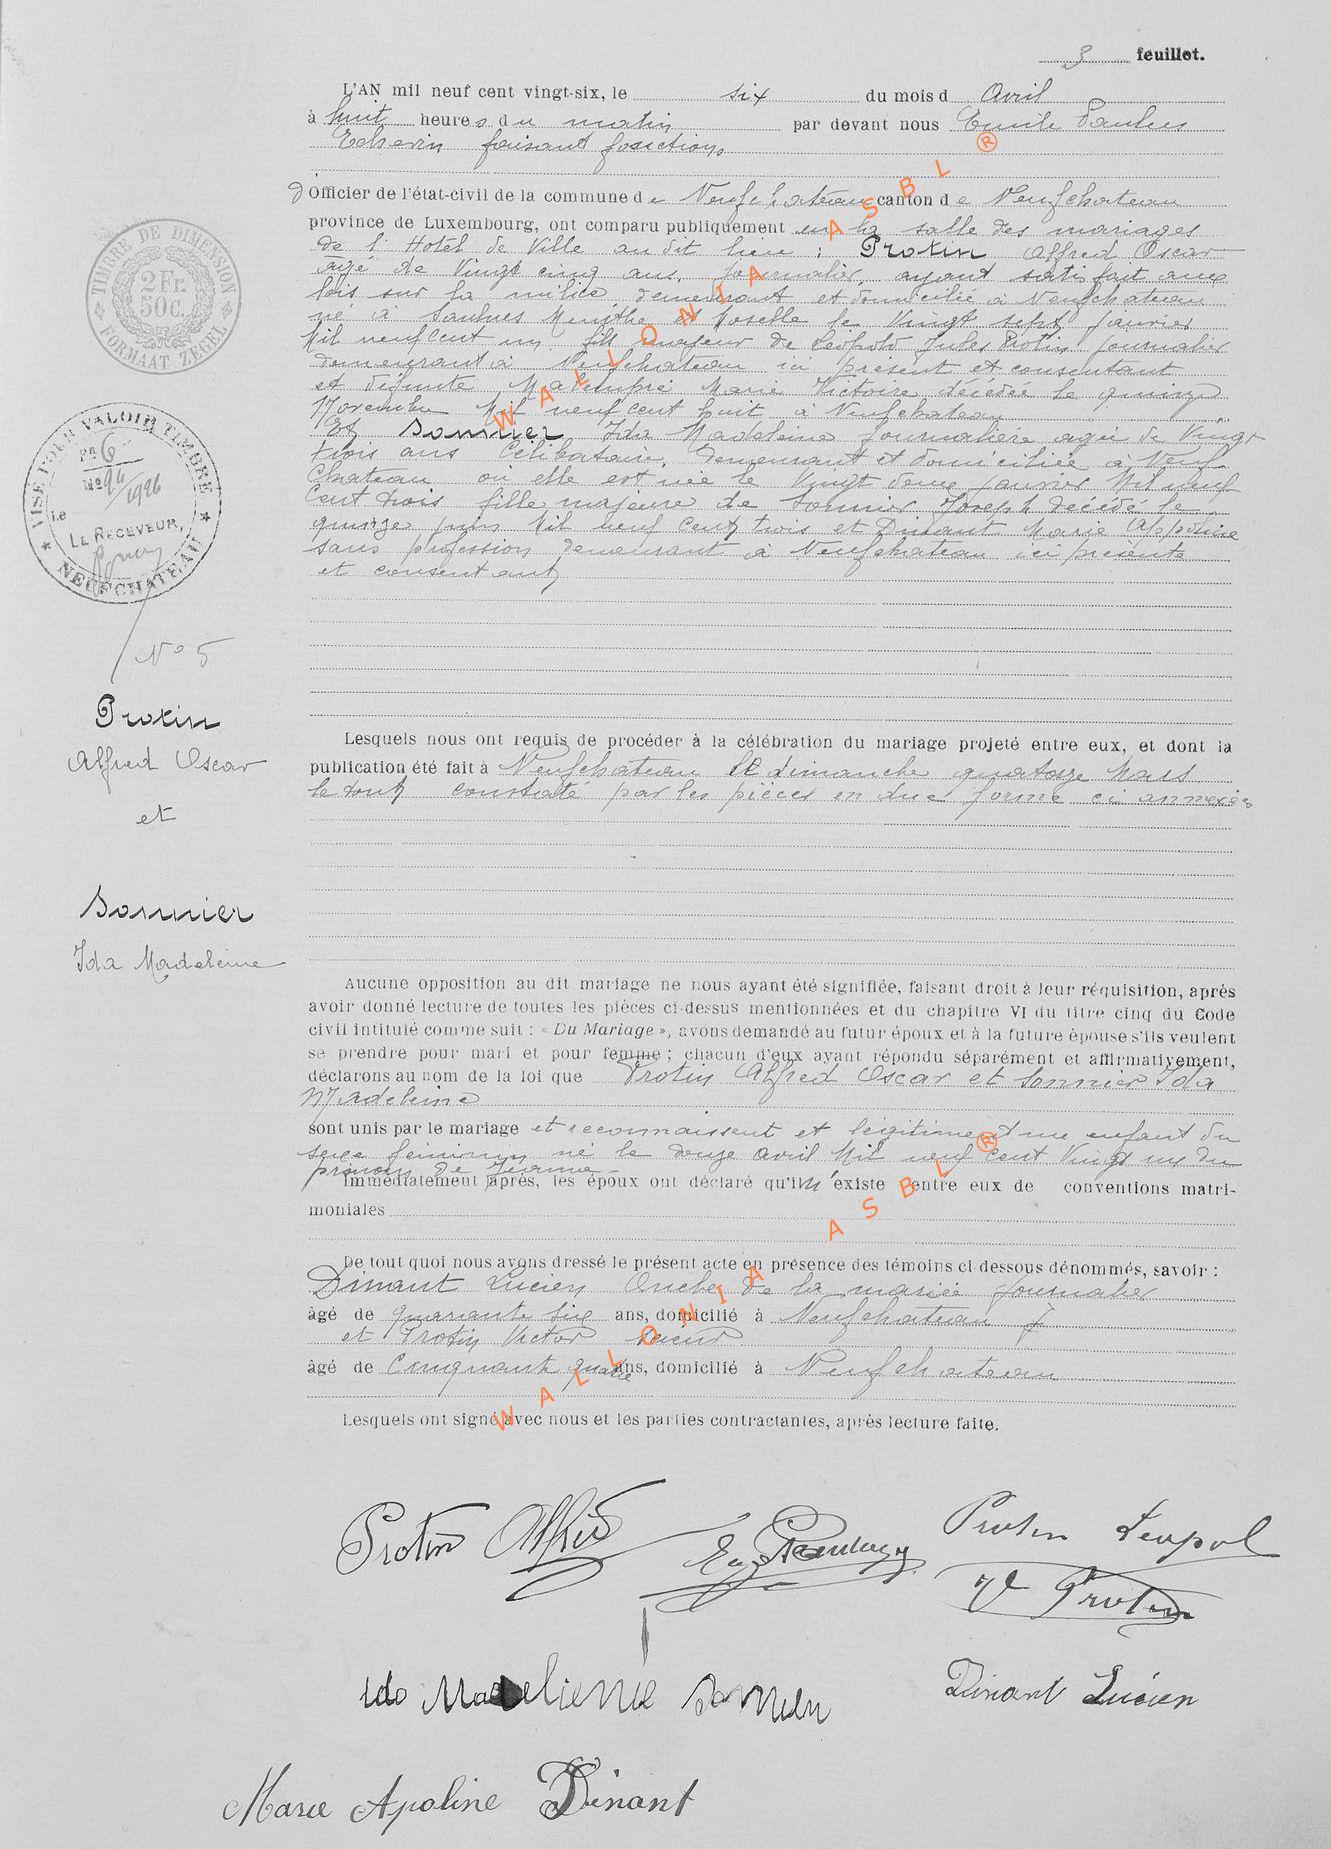 3 feuillet.
L'AN mil neuf cent vingt-six, le six du mois d Avril
à huit heures du matin par devant nous Emile Paulus
Echevin faisant fonctions
d'Officier de l'état-civil de la commune de Neufchateau canton de Neufchateau
province de Luxembourg, ont comparu publiquement en la salle des mariages
de l'Hotel de Ville au dit lieu : Protin Alfred Oscar
âgé de Vingt cinq ans, journalier, ayant satisfait aux
lois sur la milice, demeurant et domicilié à Neufchateau
né à Saulnes Meurthe et Moselle le Vingt sept Janvier
Mil neuf cent un fils majeur de Léopold Jules Protin journalier
demeurant à Neufchateau ici présent et consentant
et défunte Malempré Marie Victoire décédée le quinze
Novembre Mil neuf cent huit à Neufchateau
Et Sonnier Ida Madeleine journalière agée de Vingt
trois ans Célibataire, demeurant et domiciliée à Neuf
chateau où elle est née le Vingt deux janvier Mil neuf
cent trois fille majeure de Sonnier Joseph décédé le
quinze juin Mil neuf cent trois et Dinant Marie Appoline
sans profession demeurant à Neufchateau ici présente
et consentant
TIMBRE DE DIMENSION
2 Fr.
50 C.
FORMAAT ZEGEL
VISÉ POUR VALOIR TIMBRE
Fr. 6
No 94
le 1926
LE RECEVEUR,
NEUFCHATEAU
No 5
Protin
Alfred Oscar
et
Sonnier
Ida Madeleine
Lesquels nous ont requis de procéder à la célébration du mariage projeté entre eux, et dont la
publication été fait à Neufchateau le dimanche quatorze Mars
le tout constaté par les pièces en due forme ci annexées
Aucune opposition au dit mariage ne nous ayant été signifiée, faisant droit à leur réquisition, après
avoir donné lecture de toutes les pièces ci-dessus mentionnées et du chapitre VI du titre cinq du Code
civil intitulé comme suit : « Du Mariage », avons demandé au futur époux et à la future épouse s'ils veulent
se prendre pour mari et pour femme ; chacun d'eux ayant répondu séparément et affirmativement,
déclarons au nom de la loi que Protin Alfred Oscar et Sonnier Ida
Madeleine
sont unis par le mariage et reconnaissent et légitiment une enfant du
sexe féminin né le douze avril Mil neuf cent Vingt un du
prénom de Jeanne -
Immédiatement après, les époux ont déclaré qu'il n'existe entre eux de conventions matri-
moniales
De tout quoi nous avons dressé le présent acte en présence des témoins ci dessous dénommés, savoir :
Dinant Lucien Oncle de la mariée journalier
âgé de quarante six ans, domicilié à Neufchateau
et Protin Victor
âgé de Cinquante quatre ans, domicilié à Neufchateau
Lesquels ont signé avec nous et les parties contractantes, après lecture faite.
Protin Alfred
Protin Leopol
V Protin
Ida Madelienne Sonnier
Dinant Lucien
Marie Apoline Dinant
WALLONIA ASBL ®
WALLONIA ASBL ®